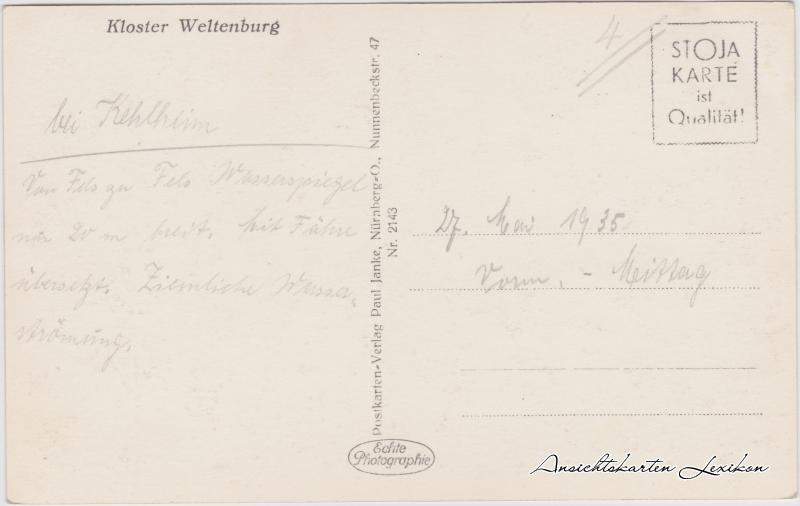 Kloster Weltenburg
bei Kehlheim
Von Fels zu Fels Wasserspiegel
nur 20 m breit. Mit Fähre
übersetzt. Ziemliche Wasser-
strömung.
Postkarten-Verlag Paul Janke, Nürnberg-O., Nunnenbeckstr. 47
Nr. 2143
Echte
Photographie
4
STOJA
KARTE
ist
Qualität!
27. Mai 1935
Vorm. - Mittag
Ansichtskarten Lexikon